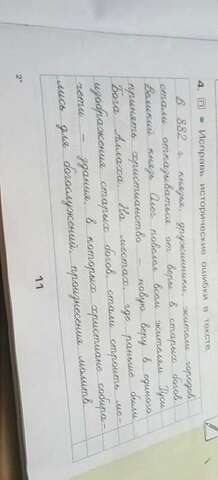 4. П • Исправь исторические ошибки в тексте.
В 882 г. князья, дружинники, жители городов
стали отказываться от веры в старых богов.
Великий князь Олег повелел всем жителям Руси
принять христианство – новую веру в единого
Бога Аллаха. На местах, где раньше были
изображения старых богов, стали строить ме-
чети – здания, в которых христиане собира-
лись для богослужений, произнесения молитв.
11
2*